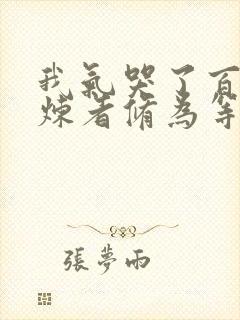 我氣哭了百
煉者脩為等
張夢雨